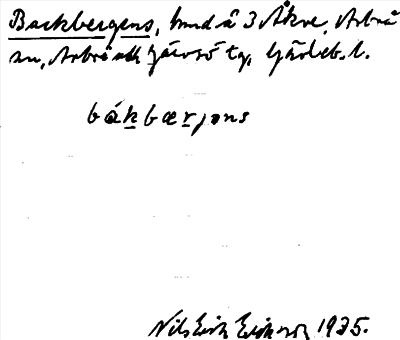 Backbergens, hmd å 3 Åkre, Arbrå
sn, Arbrå och Järvsö tg, Gävleb. l.
båkbærjəns
Nils Erik Eriksson 1935.